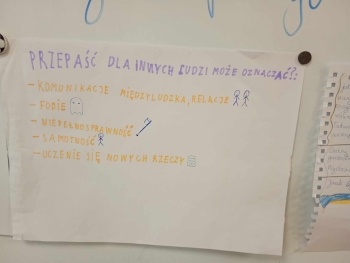 PRZEPAŚĆ DLA INNYCH LUDZI MOŻE OZNACZAĆ:
- KOMUNIKACJE MIĘDZYLUDZKA, RELACJE
- FOBIE
- NIEPEŁNOSPRAWNOŚĆ
- SAMOTNOŚĆ
- UCZENIE SIĘ NOWYCH RZECZY